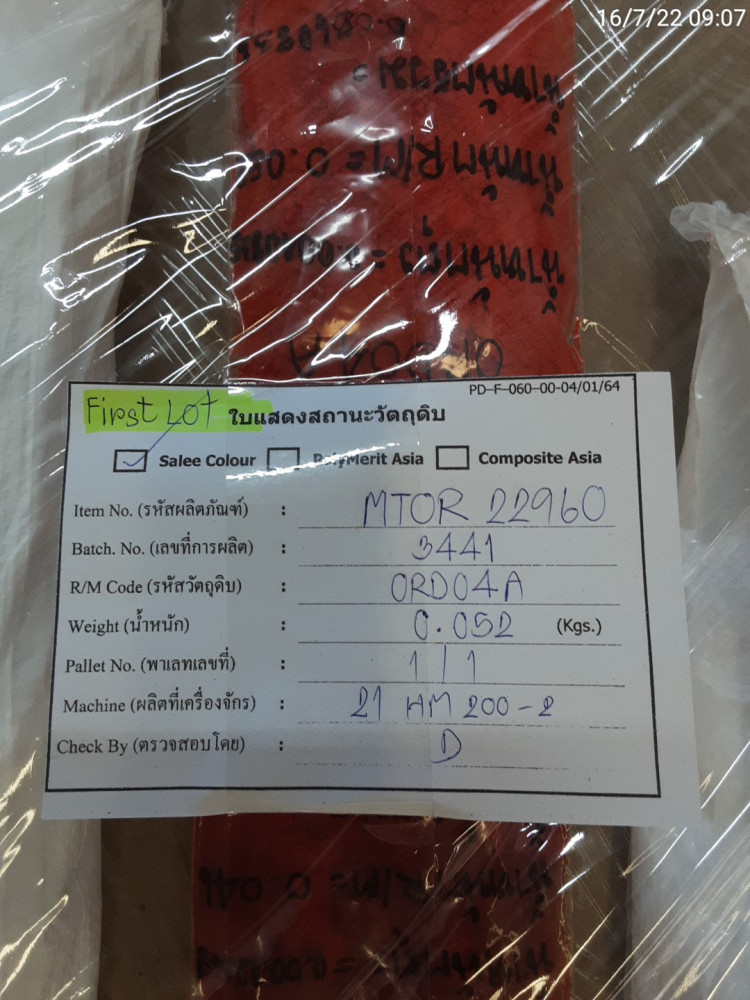 16/7/22 09:07
น้ำหนักรวม =
น้ำหนัก R/M = 0.05
น้ำหนักถุง =
ORD04A
PD-F-060-00-04/01/64
First LOT ใบแสดงสถานะวัตถุดิบ
Salee Colour PolyMerit Asia Composite Asia
Item No. (รหัสผลิตภัณฑ์) : MTOR 22960
Batch. No. (เลขที่การผลิต) : 3441
R/M Code (รหัสวัตถุดิบ) : ORD04A
Weight (น้ำหนัก) : 0.052 (Kgs.)
Pallet No. (พาเลทเลขที่) : 1/1
Machine (ผลิตที่เครื่องจักร) : 21 HM 200-2
Check By (ตรวจสอบโดย) : D
น้ำหนัก R/M = 0.046
น้ำหนักถุง =